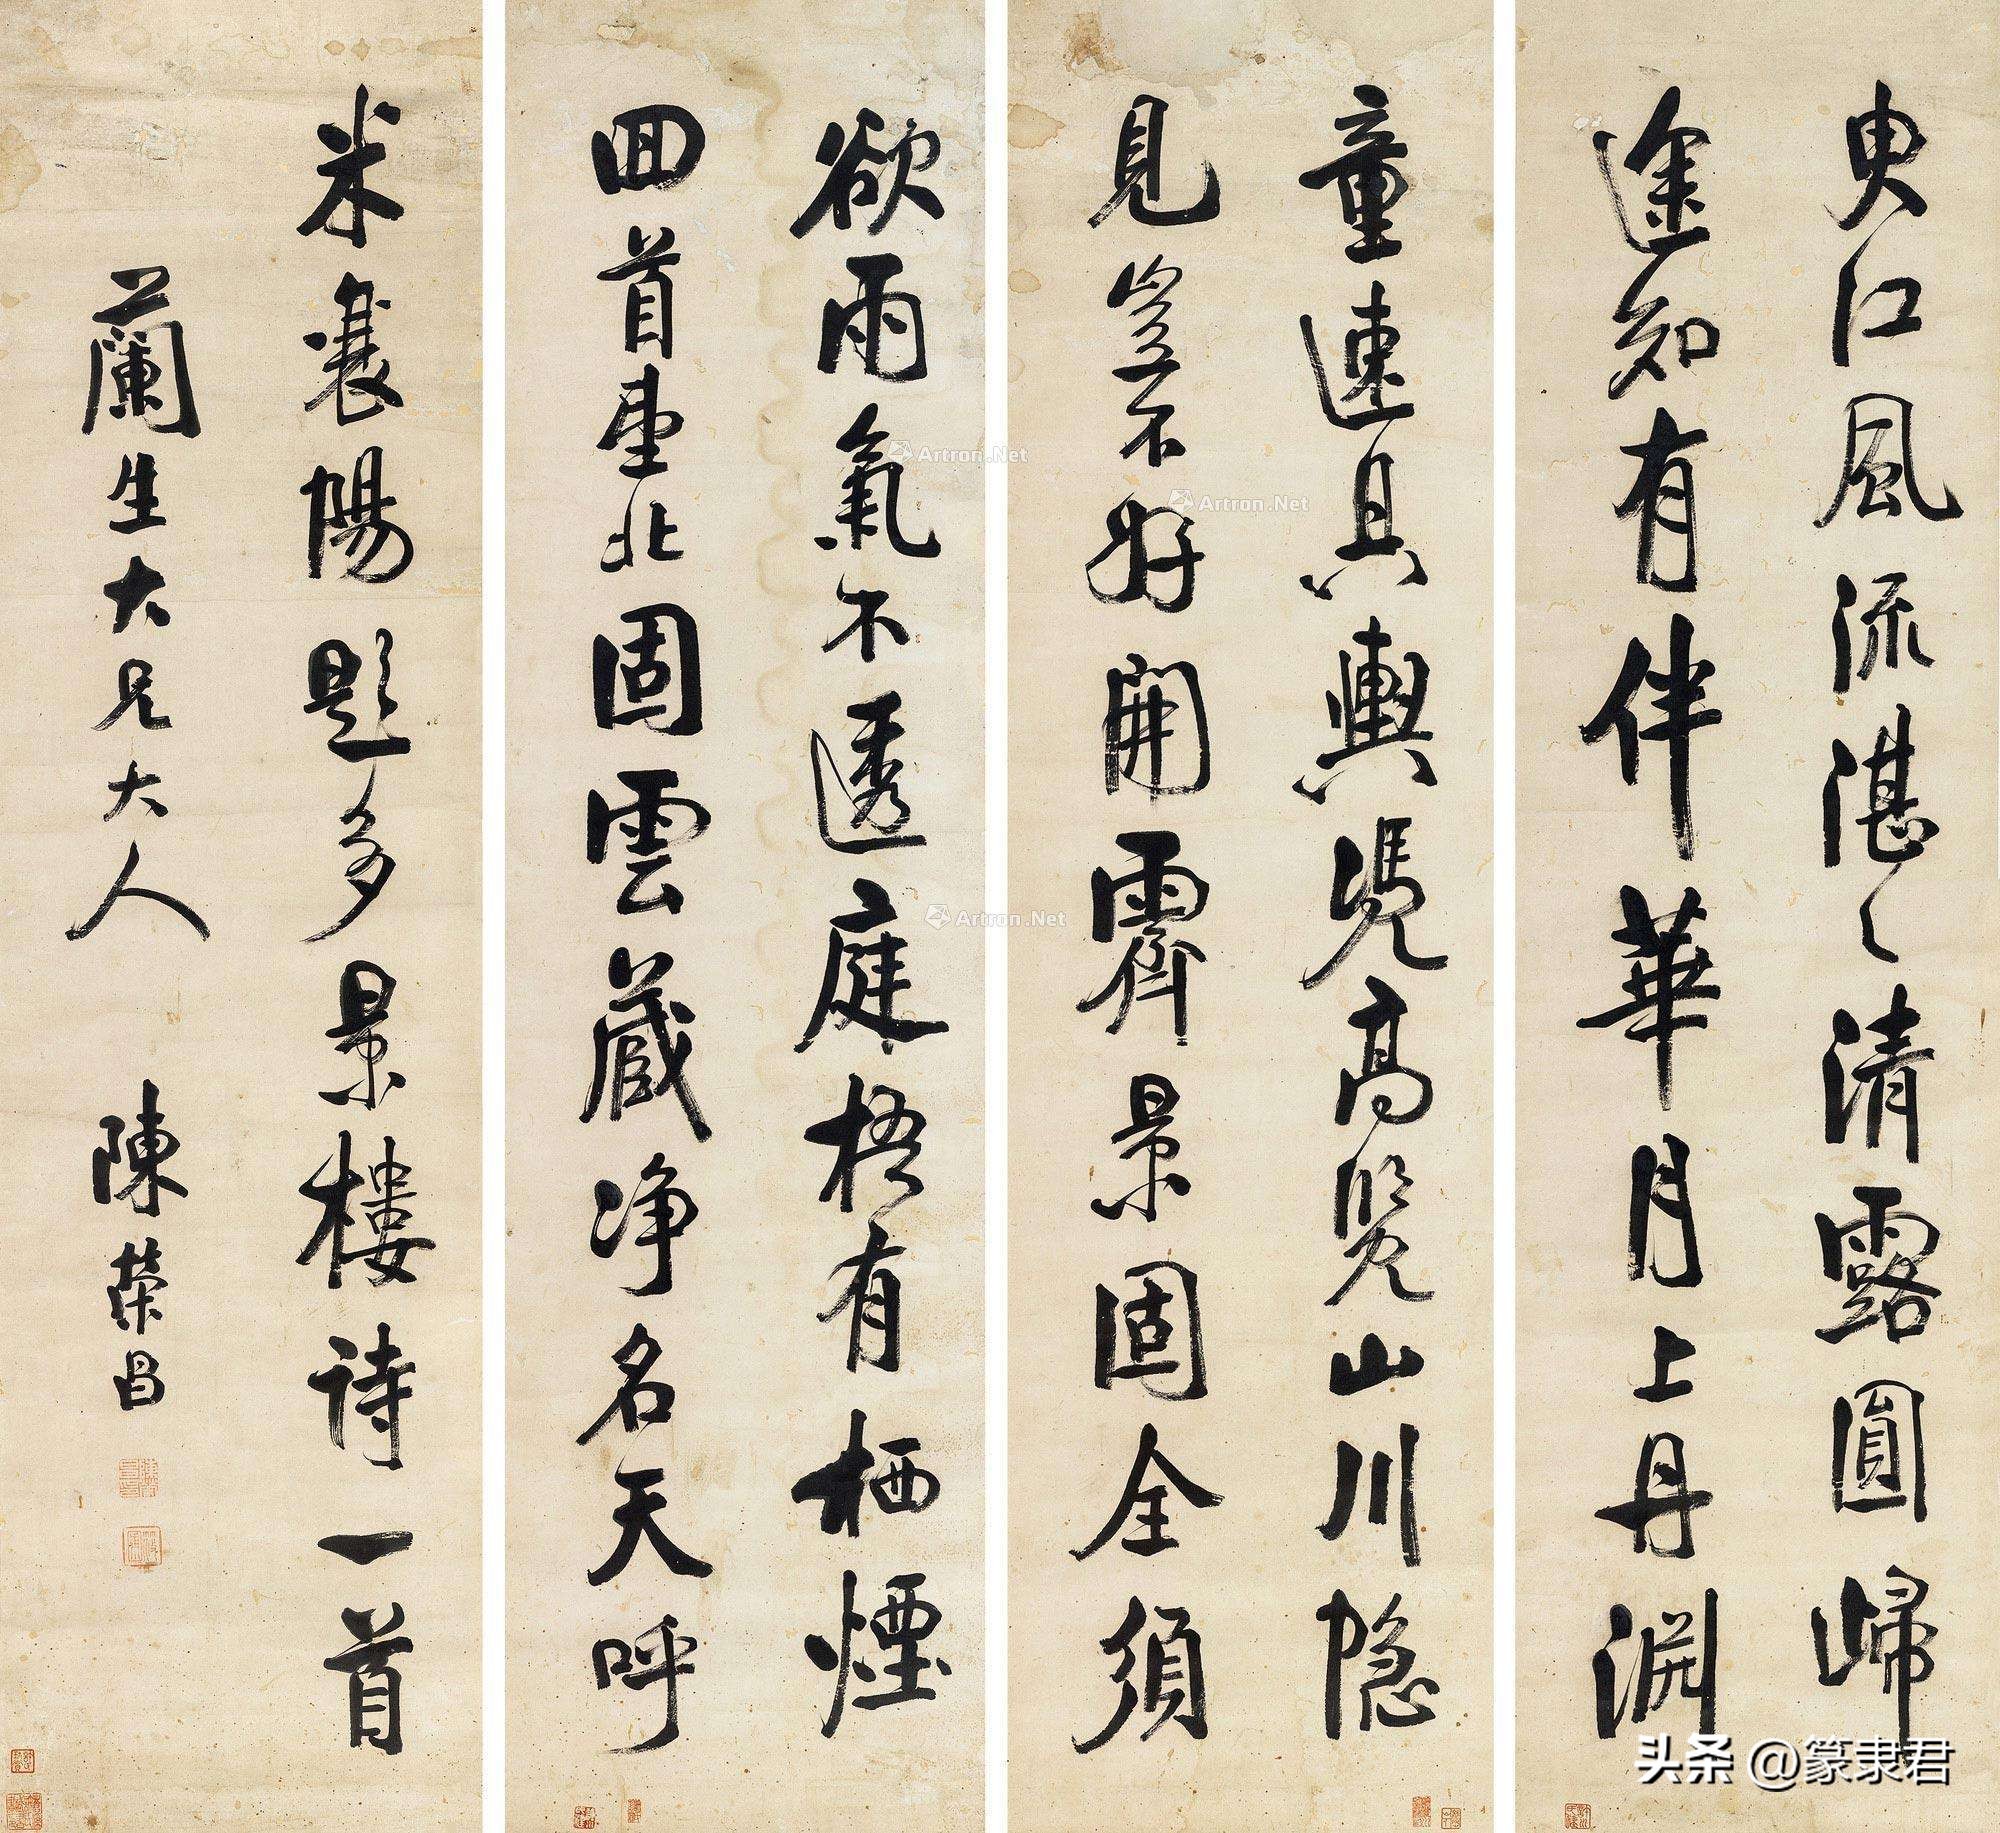 江風流湛々清露圓歸
途知有伴華月上丹淵
童速具輿凴高覽山川隱
見豈不好開霽景固全須
欲雨氣不透庭梧有栖煙
回首望北固雲藏净名天呼
米襄陽題多景樓詩一首
蘭生大兄大人 陳榮昌
Artron.Net
Artron.Net
Artron.Net
头条 @篆隶君